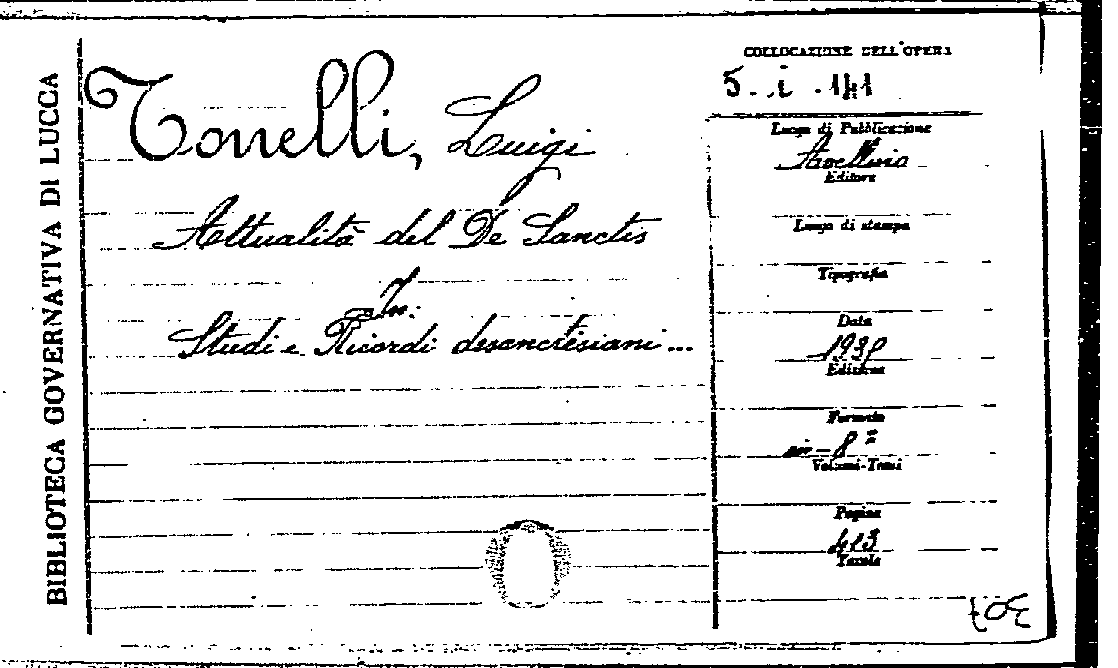 BIBLIOTECA GOVERNATIVA DI LUCCA
Tonelli, Luigi
Attualità del De Sanctis
In:
Studi e Ricordi desanctisiani...
COLLOCAZIONE DELL'OPERA
5. i. 141
Luogo di Pubblicazione
Avellino
Editore
Luogo di stampa
Tipografia
Data
Edizione
Formato
in-8º
Volumi-Tomi
Pagine
413
Tavole